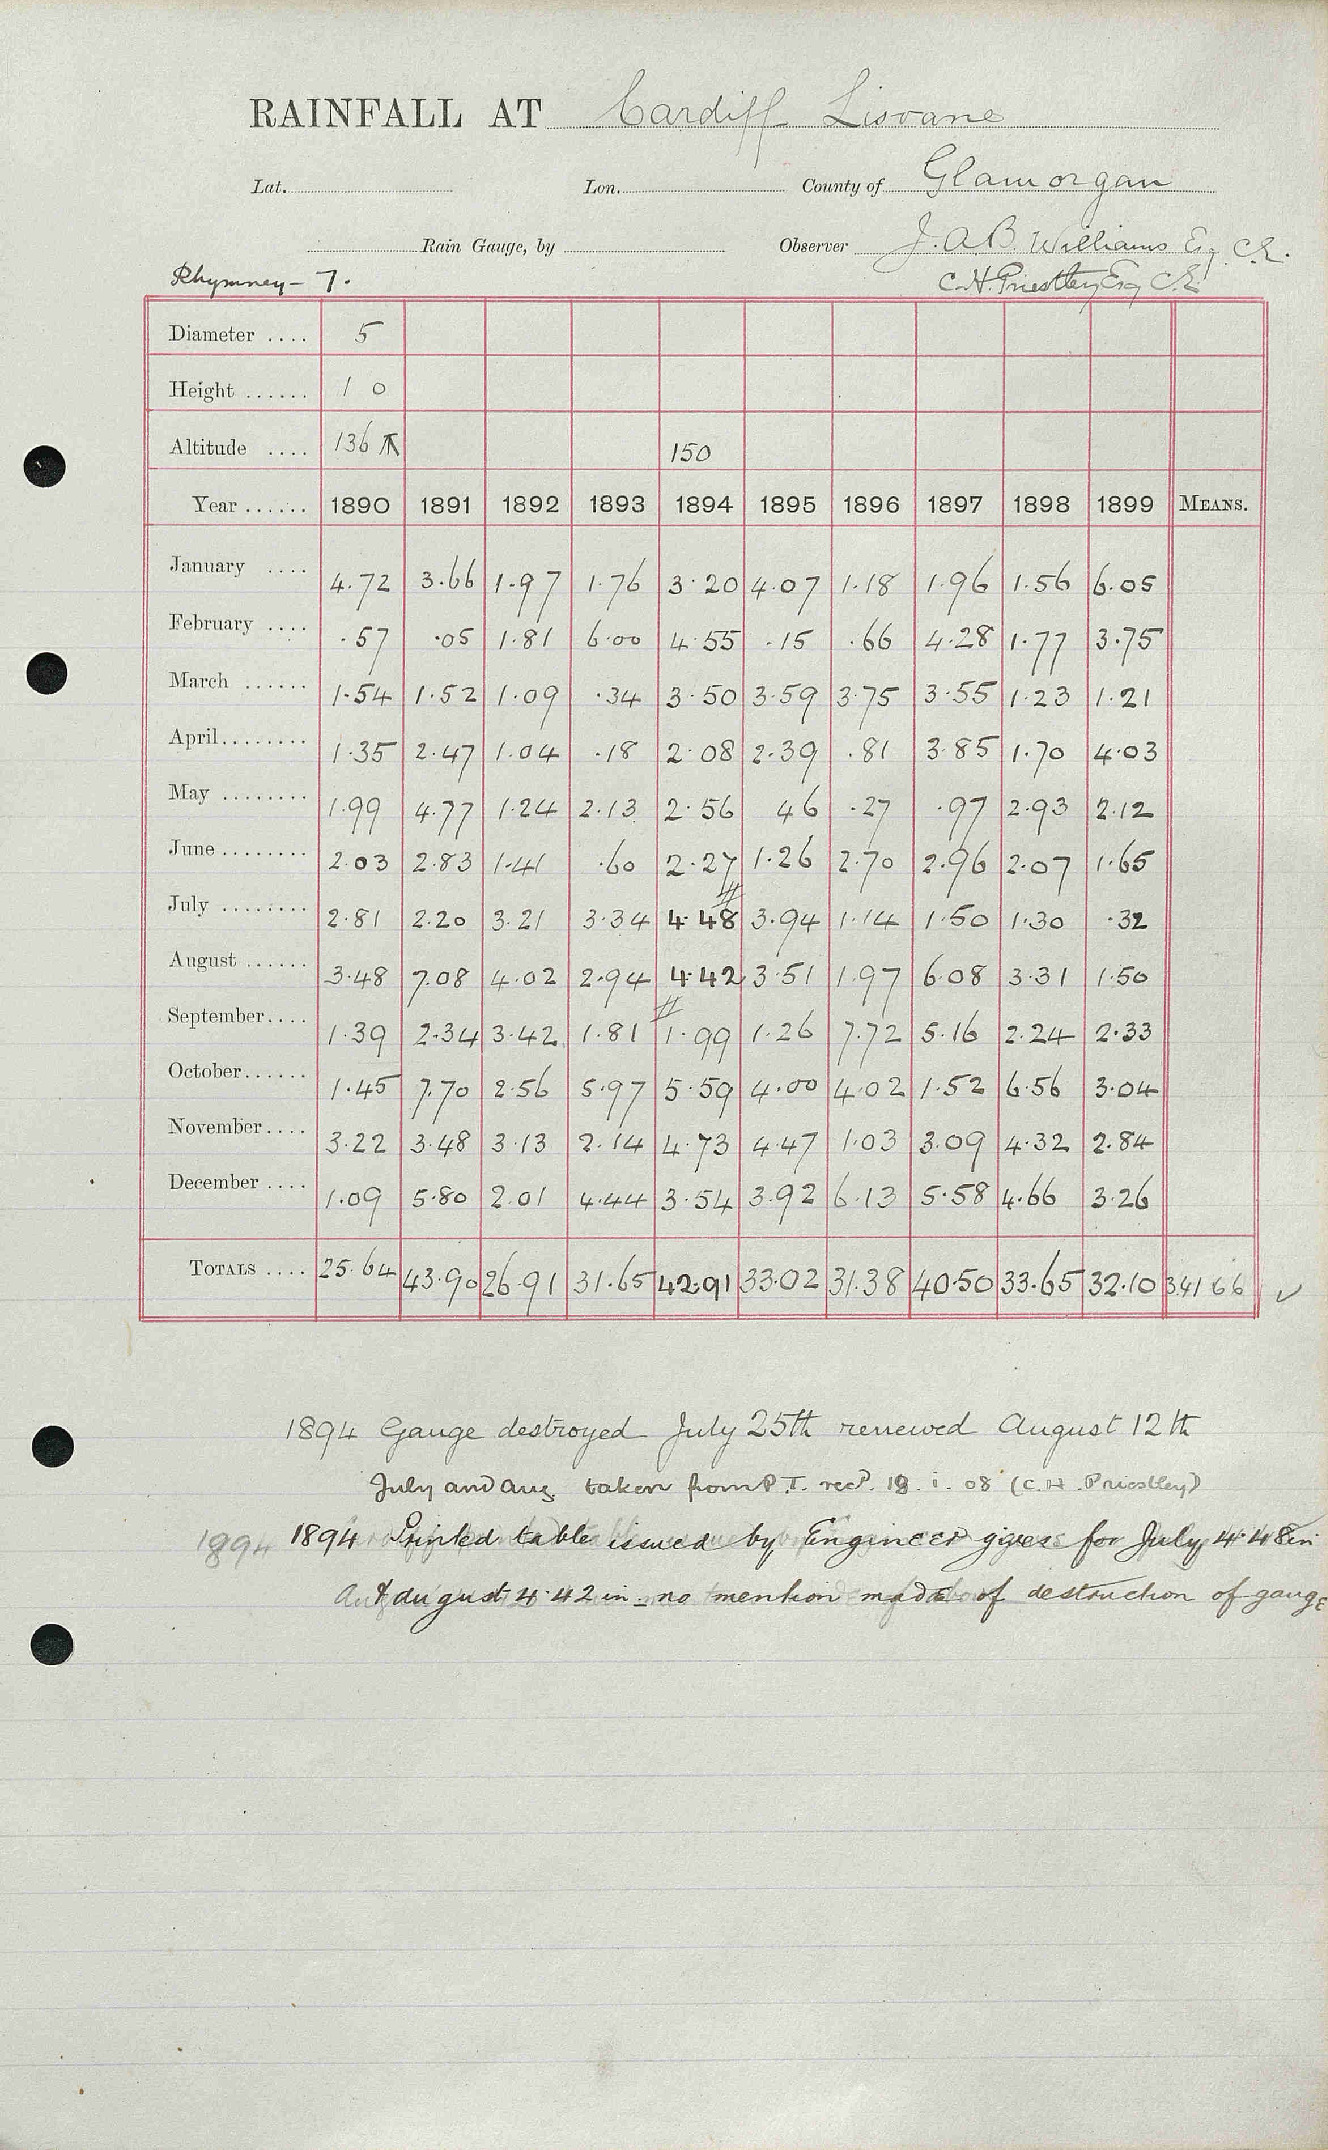 RAINFALL AT Cardiff Lisvane
Lat. Lon. County of Glamorgan
Rain Gauge, by Observer J. A. B. Williams Esq C.E.
Rhymney - 7. C. H. Priestley Esq C.E
Diameter .... 5
Height ...... 1 0
Altitude .... 136 150
Year ...... 1890 1891 1892 1893 1894 1895 1896 1897 1898 1899 MEANS.
January .... 4.72 3.66 1.97 1.76 3.20 4.07 1.18 1.96 1.56 6.05
February .... .57 .05 1.81 6.00 4.55 .15 .66 4.28 1.77 3.75
March ...... 1.54 1.52 1.09 .34 3.50 3.59 3.75 3.55 1.23 1.21
April........ 1.35 2.47 1.04 .18 2.08 2.39 .81 3.85 1.70 4.03
May ........ 1.99 4.77 1.24 2.13 2.56 46 .27 .97 2.93 2.12
June ........ 2.03 2.83 1.41 .60 2.27 1.26 2.70 2.96 2.07 1.65
July ........ 2.81 2.20 3.21 3.34 4.48 3.94 1.14 1.50 1.30 .32
August ...... 3.48 7.08 4.02 2.94 4.42 3.51 1.97 6.08 3.31 1.50
September.... 1.39 2.34 3.42 1.81 1.99 1.26 7.72 5.16 2.24 2.33
October...... 1.45 7.70 2.56 5.97 5.59 4.00 4.02 1.52 6.56 3.04
November.... 3.22 3.48 3.13 2.14 4.73 4.47 1.03 3.09 4.32 2.84
December .... 1.09 5.80 2.01 4.44 3.54 3.92 6.13 5.58 4.66 3.26
TOTALS .... 25.64 43.90 26.91 31.65 42.91 33.02 31.38 40.50 33.65 32.10 341 66 ✓
1894 Gauge destroyed July 25th renewed August 12th
July and Aug. taken from P.T. recd. 18. i. 08 (C. H. Priestley)
1894 1894 Printed table issued by Engineer gives for July 4.48 in
& August 4.42 in - no mention made of destruction of gauge